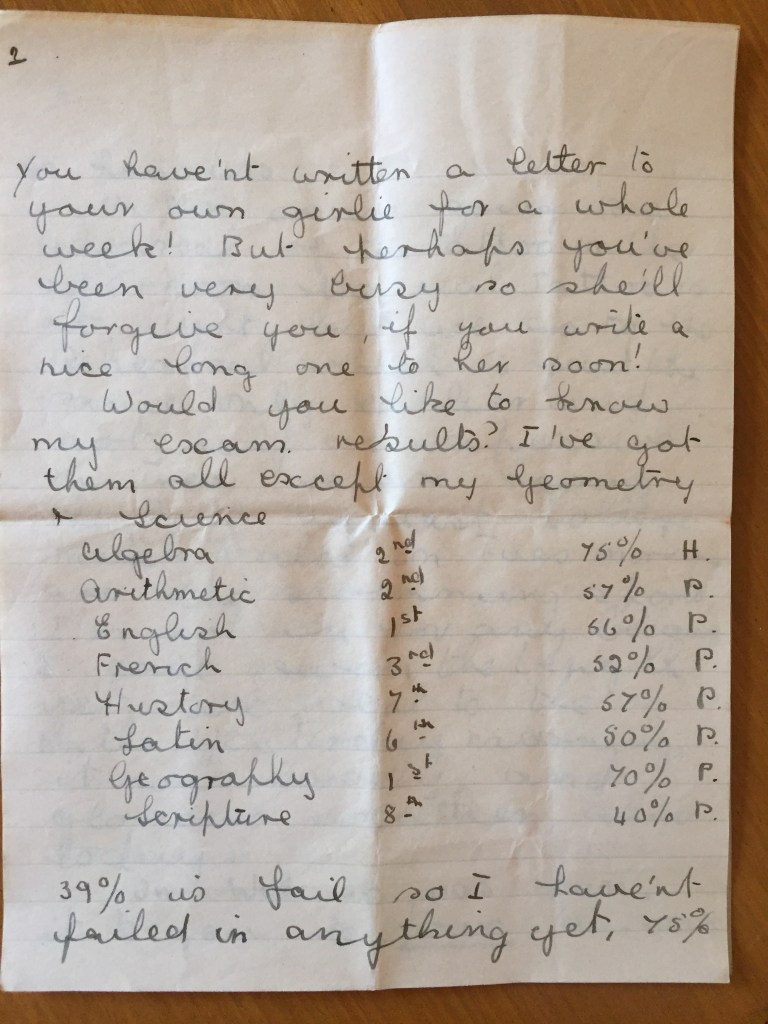 2
you have'nt written a letter to
your own girlie for a whole
week! But perhaps you've
been very busy so she'll
forgive you, if you write a
nice long one to her soon!
Would you like to know
my exam. results? I've got
them all except my Geometry
+ Science
Algebra 2nd 75% H.
Arithmetic 2nd 57% P.
English 1st 66% P.
French 3rd 52% P.
History 7th 57% P.
Latin 6th 50% P.
Geography 1st 70% P.
Scripture 8th 40% P.
39% is fail so I have'nt
failed in anything yet, 75%